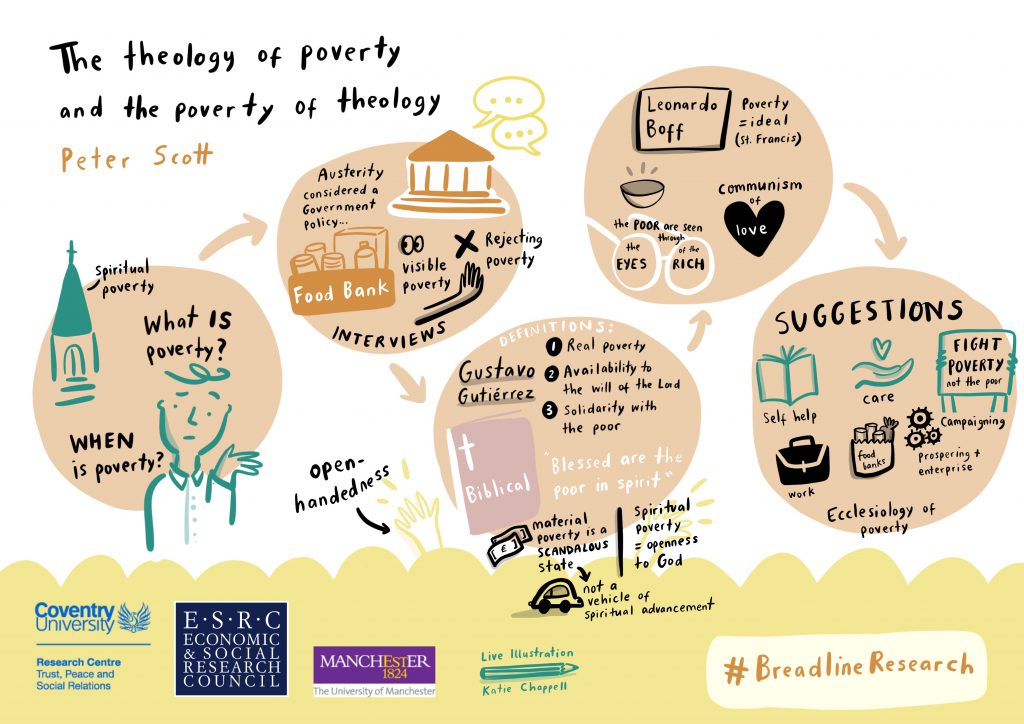 The theology of poverty
and the poverty of theology
Peter Scott
Spiritual
poverty
What IS
poverty?
WHEN
is poverty?
Austerity
considered a
Government
policy...
Food Bank
visible
poverty
Rejecting
poverty
INTERVIEWS
DEFINITIONS:
Gustavo
Gutiérrez
1 Real poverty
2 Availability to
the will of the Lord
3 Solidarity with
the poor
Biblical
"Blessed are the
poor in spirit"
open-
handedness
material
poverty is a
SCANDALOUS
state
€
not a
vehicle of
spiritual advancement
Spiritual
poverty
= openness
to God
Leonardo
Boff
Poverty
= ideal
(St. Francis)
communism
of
love
the POOR are seen
through
the
EYES
of the
RICH
SUGGESTIONS
Self help
care
FIGHT
POVERTY
not the poor
Campaigning
work
food
banks
Prospering +
enterprise
Ecclesiology of
poverty
Coventry
University
Research Centre
Trust, Peace and
Social Relations
E·S·R·C
ECONOMIC
& SOCIAL
RESEARCH
COUNCIL
MANCHESTER
1824
The University of Manchester
Live Illustration
Katie Chappell
#BreadlineResearch